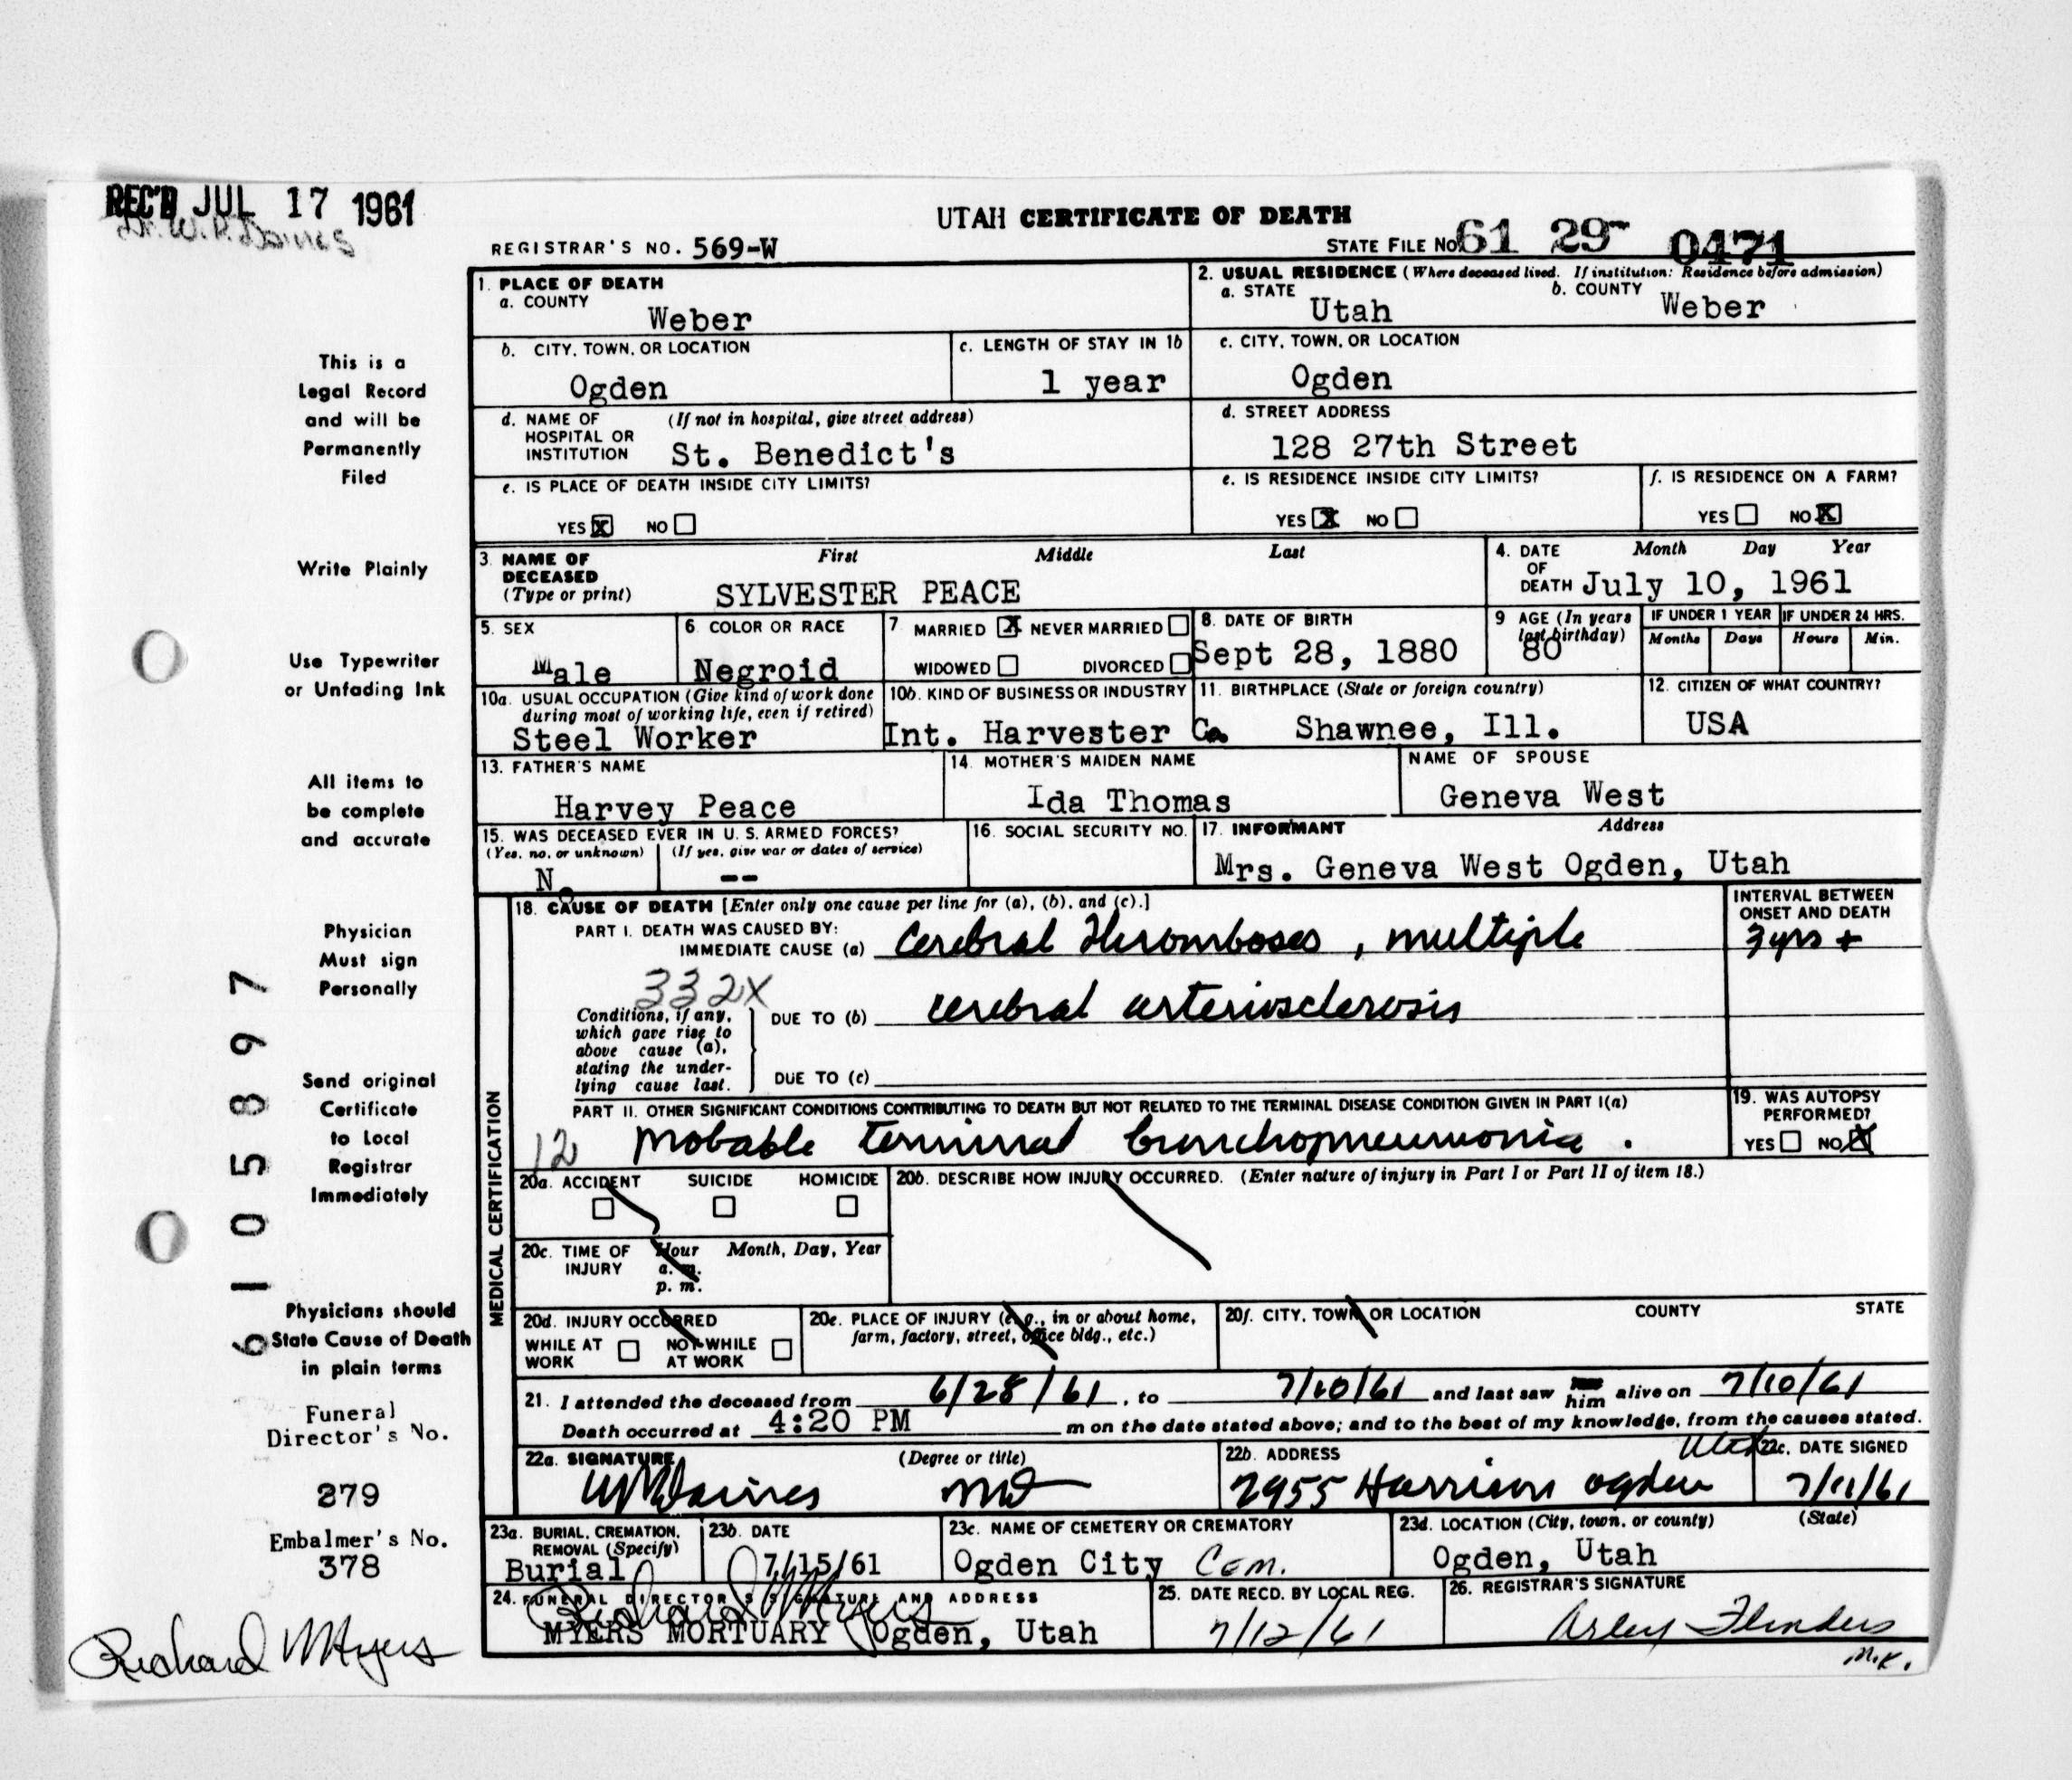 REC'D JUL 17 1961
Dr. W.R. Daines
UTAH CERTIFICATE OF DEATH
REGISTRAR'S NO. 569-W
STATE FILE NO. 61 29 0471
1. PLACE OF DEATH
a. COUNTY
Weber
2. USUAL RESIDENCE (Where deceased lived. If institution: Residence before admission)
a. STATE
Utah
b. COUNTY
Weber
b. CITY, TOWN, OR LOCATION
Ogden
c. LENGTH OF STAY IN 1b
1 year
c. CITY, TOWN, OR LOCATION
Ogden
d. NAME OF HOSPITAL OR INSTITUTION
(If not in hospital, give street address)
St. Benedict's
d. STREET ADDRESS
128 27th Street
e. IS PLACE OF DEATH INSIDE CITY LIMITS?
YES X NO
e. IS RESIDENCE INSIDE CITY LIMITS?
YES X NO
f. IS RESIDENCE ON A FARM?
YES NO X
3. NAME OF DECEASED (Type or print)
First Middle Last
SYLVESTER PEACE
4. DATE OF DEATH
Month Day Year
July 10, 1961
5. SEX
Male
6. COLOR OR RACE
Negroid
7 MARRIED X NEVER MARRIED
WIDOWED DIVORCED
8. DATE OF BIRTH
Sept 28, 1880
9 AGE (In years last birthday)
80
IF UNDER 1 YEAR
Months Days
IF UNDER 24 HRS.
Hours Min.
10a. USUAL OCCUPATION (Give kind of work done during most of working life, even if retired)
Steel Worker
10b. KIND OF BUSINESS OR INDUSTRY
Int. Harvester Co.
11. BIRTHPLACE (State or foreign country)
Shawnee, Ill.
12. CITIZEN OF WHAT COUNTRY?
USA
13. FATHER'S NAME
Harvey Peace
14. MOTHER'S MAIDEN NAME
Ida Thomas
NAME OF SPOUSE
Geneva West
15. WAS DECEASED EVER IN U. S. ARMED FORCES?
(Yes, no, or unknown) (If yes, give war or dates of service)
No --
16. SOCIAL SECURITY NO.
17. INFORMANT Address
Mrs. Geneva West Ogden, Utah
MEDICAL CERTIFICATION
18. CAUSE OF DEATH [Enter only one cause per line for (a), (b), and (c).]
PART I. DEATH WAS CAUSED BY:
IMMEDIATE CAUSE (a) Cerebral Thromboses, multiple
INTERVAL BETWEEN ONSET AND DEATH
3 yrs +
332X
Conditions, if any, which gave rise to above cause (a), stating the underlying cause last.
DUE TO (b) cerebral arteriosclerosis
DUE TO (c)
PART II. OTHER SIGNIFICANT CONDITIONS CONTRIBUTING TO DEATH BUT NOT RELATED TO THE TERMINAL DISEASE CONDITION GIVEN IN PART I(a)
12 Probable terminal bronchopneumonia.
19. WAS AUTOPSY PERFORMED?
YES NO X
20a. ACCIDENT SUICIDE HOMICIDE
20b. DESCRIBE HOW INJURY OCCURRED. (Enter nature of injury in Part I or Part II of item 18.)
20c. TIME OF INJURY
Hour Month, Day, Year
a. m.
p. m.
20d. INJURY OCCURRED
WHILE AT WORK NOT WHILE AT WORK
20e. PLACE OF INJURY (e. g., in or about home, farm, factory, street, office bldg., etc.)
20f. CITY, TOWN, OR LOCATION COUNTY STATE
21. I attended the deceased from 6/28/61, to 7/10/61 and last saw him alive on 7/10/61
Death occurred at 4:20 PM m on the date stated above; and to the best of my knowledge, from the causes stated.
22a. SIGNATURE (Degree or title)
WR Daines MD
22b. ADDRESS
2955 Harrison Ogden Utah
22c. DATE SIGNED
7/11/61
23a. BURIAL, CREMATION, REMOVAL (Specify)
Burial
23b. DATE
7/15/61
23c. NAME OF CEMETERY OR CREMATORY
Ogden City Cem.
23d. LOCATION (City, town, or county) (State)
Ogden, Utah
24. FUNERAL DIRECTOR'S SIGNATURE AND ADDRESS
Richard Myers
MYERS MORTUARY Ogden, Utah
25. DATE RECD. BY LOCAL REG.
7/12/61
26. REGISTRAR'S SIGNATURE
Arley Flinders
M.K.
This is a
Legal Record
and will be
Permanently
Filed
Write Plainly
Use Typewriter
or Unfading Ink
All items to
be complete
and accurate
Physician
Must sign
Personally
Send original
Certificate
to Local
Registrar
Immediately
Physicians should
State Cause of Death
in plain terms
Funeral
Director's No.
279
Embalmer's No.
378
Richard Myers
6105897